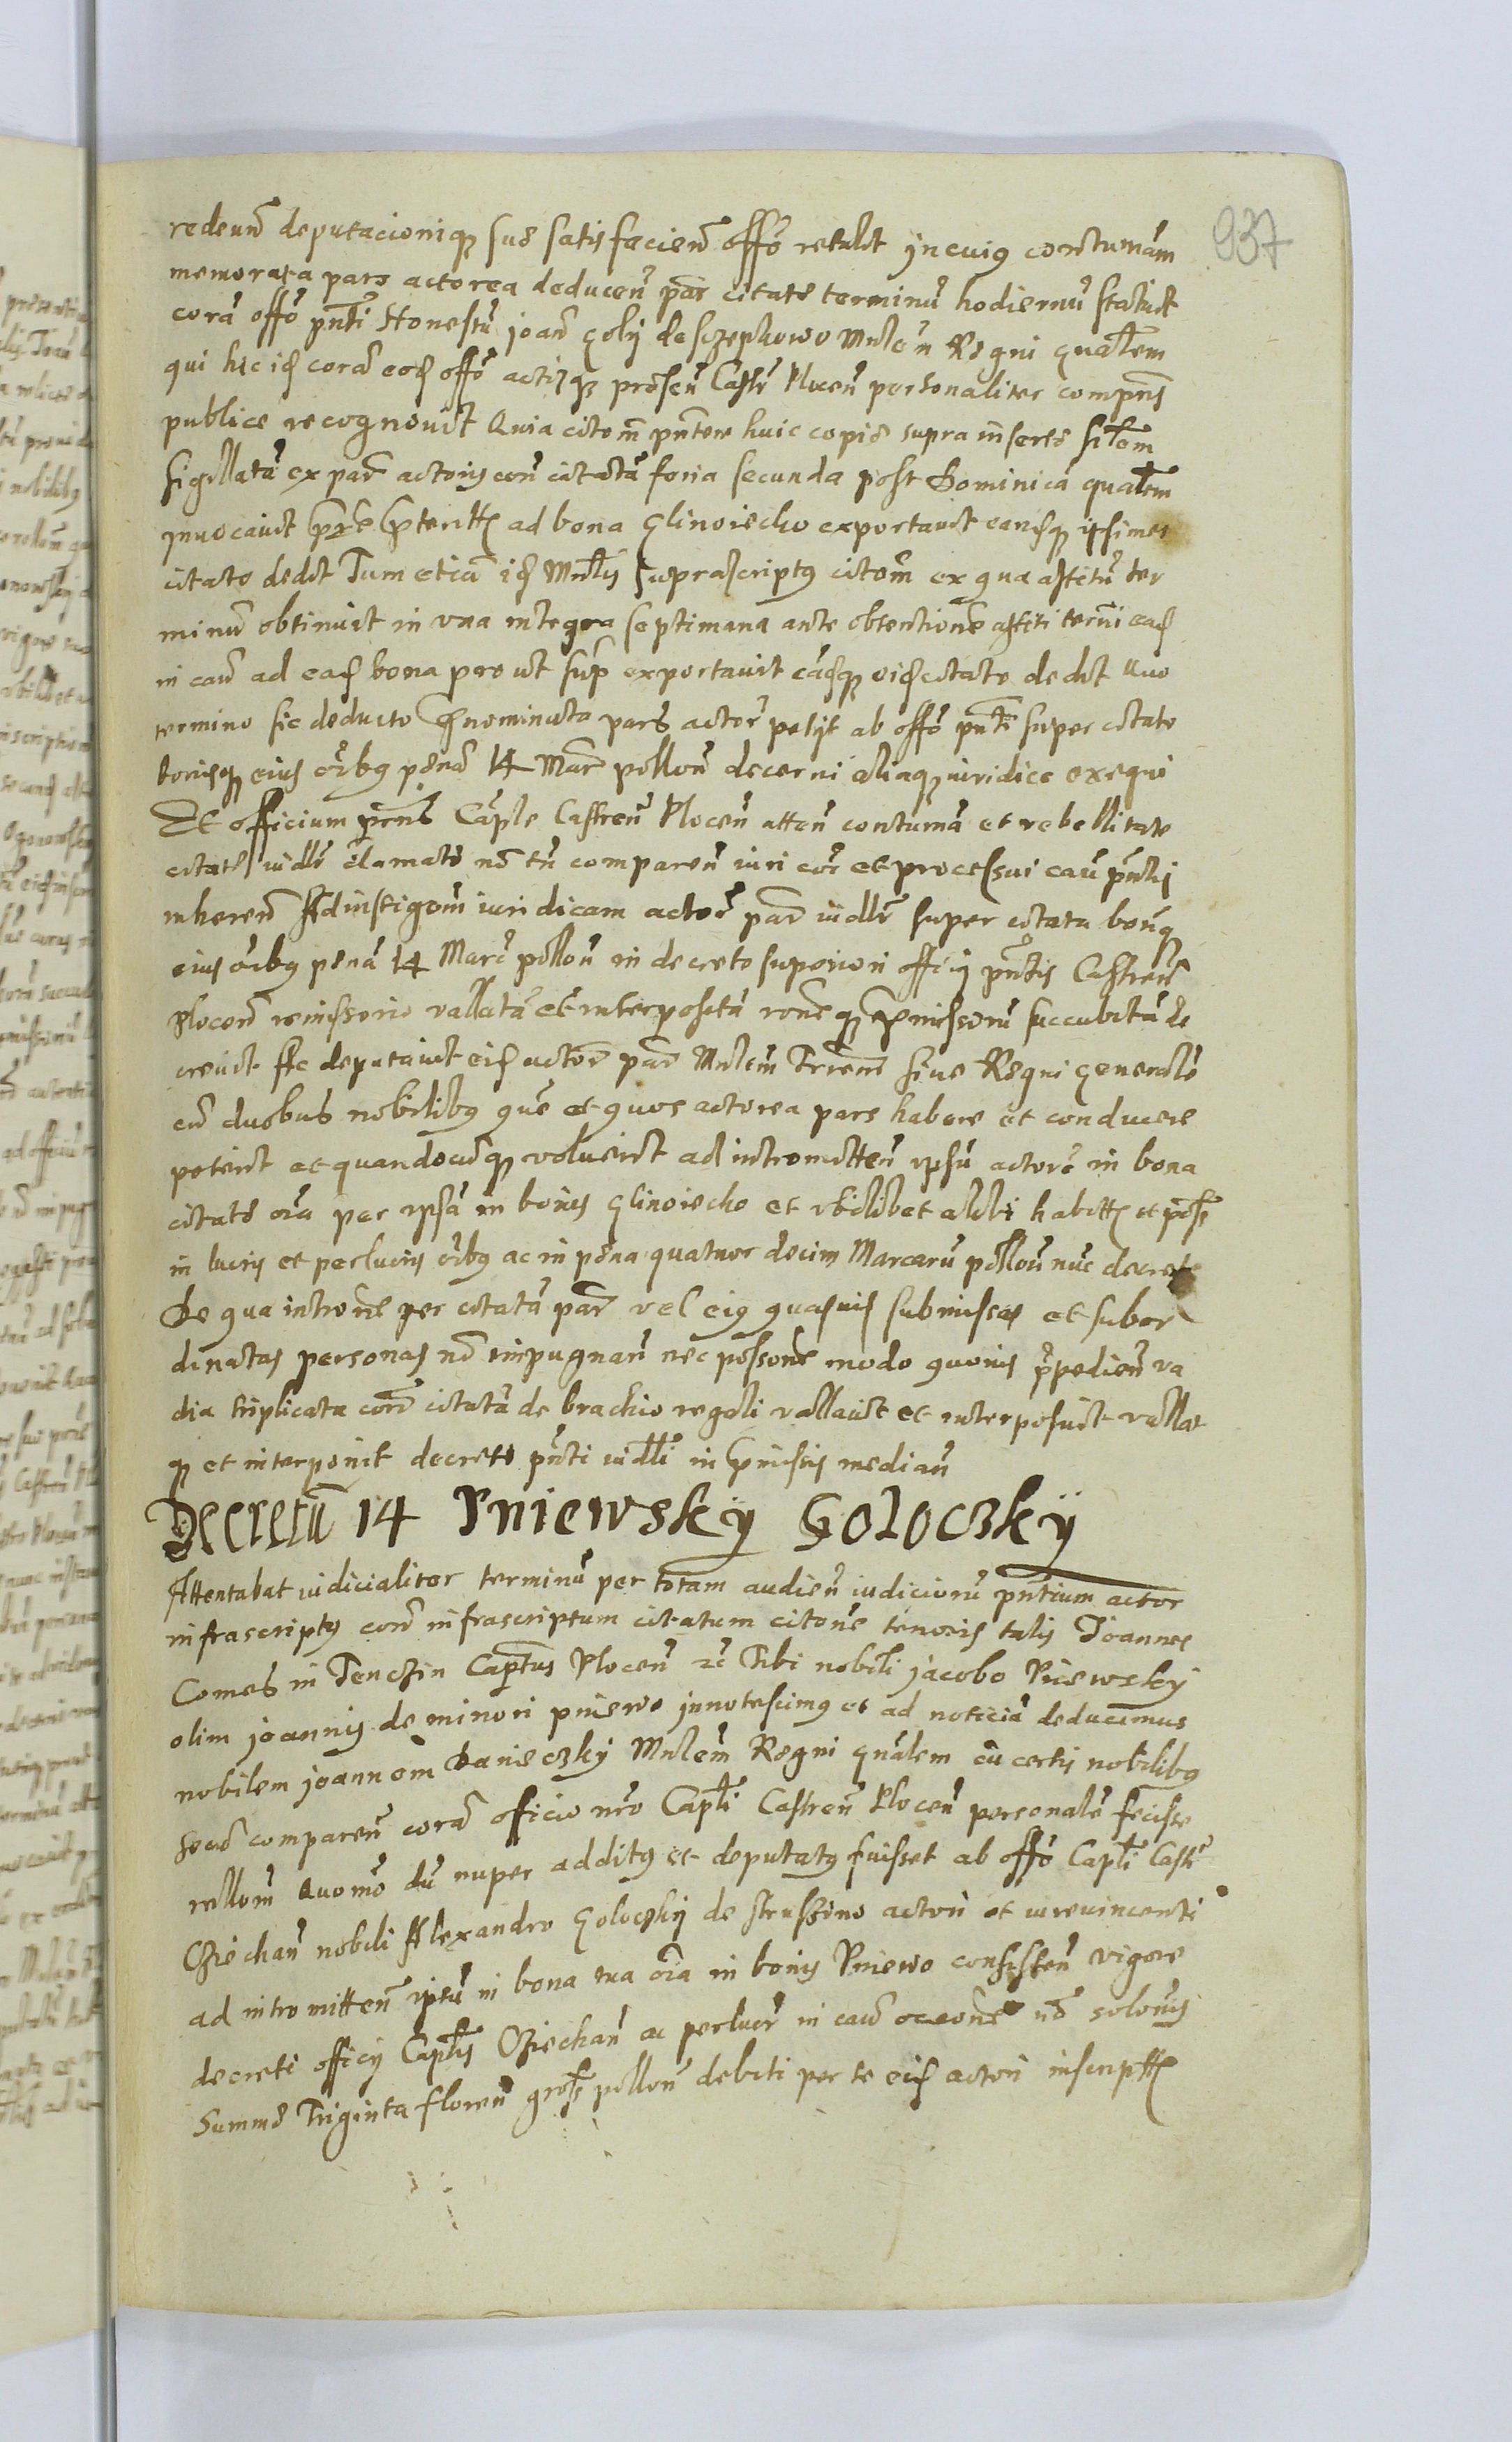 937
redeun̄ deputacioniq̨ suę satisfacien̄ offō retulit In cuiꝰ contumā
memorata pars actorea deducen̄ par citatę terminū hodiernū statuit
corā offō pn̄ti Honestū Joan̄ Goly de Sczepkowo Mnlem̄ Regni gnālem
qui hic iꝫ corā eoꝫ offō actisq̨ presen̄ Castr̄ Plocen̄ personaliter compn̄s
publice recognovit Quia citōm pn̄tem huic copię supra insertę silem
sigillatā ex par actoris con̄ citatā feria secunda post Dominicā qualem
Invocavit pr̄e pteritꝫ ad bona Glinoiecko exportavit eamq̨ ipsimet
citato dedit Tum etiā iꝫ Mnlis suprascriptꝰ citōm ex qua astitū ter
minū obtinuit in vna integra septimana ante obtentionē astiti termi eaꝫ
in cau ad eaꝫ bona prout supr̄ exportavit eāꝫq̨ eiꝫ citato dedit Quo
termino sic deducto pnominata pars actor̄ petijt ab offō pn̄ti super citato
bonisq̨ eius oībꝰ penā 14 Mar̄ pollon̄ decerni aliaq̨ iuridice exequi
Et officium pn̄s Cāple Castren̄ Plocen̄ atten̄ contumā et rebellitate
citatę iudlr̄ clamatę nō tn̄ comparen̄ iuri cōi et processui cau pn̄tis
inheren̄ Ad instigōm iuridicam actor̄ par iudlr̄ super citata bonisq̨
eius oībꝰ penā 14 Marc̄ pollon̄ in decreto superiori officij pn̄tis Castren̄
Plocen̄ remissorio vallatā et interpositā ronēq̨ pmissorū succubitā de
crevit Ac deputavit eiꝫ actor̄ par Mnlem̄ Trrenū sive Regni generale
cū duobus nobilibꝰ quē et quos actorea pars habere et conducere
poterit et quandocūq̨ voluerit ad intromitten̄ ipsū actorē in bona
citatę oīa per ipsā in bonis Glinoiecko et vbilibet alibi habitꝫ et pos̄
in lucris et perlucris oībꝰ ac in pena quatuor decim Marcarū pollon̄ nūc decret
De qua intrōne per citatā par vel eiꝰ quasuis submissas et subor
dinatas personas nō impugnan̄ nec possone modo quouis pr̄pedien̄ va
dia triplicata con̄ citatā de brachio regali vallavit et interposuit vallat
q̨ et interponit decreto pn̄ti iudlī in pmissis median̄
Decretū 14 Pniewskÿ Goloczkÿ
Attentabat iudicialiter terminū per totam audien̄ iudiciorū pn̄tium actor
infrascriptꝰ con̄ infrascriptum citatum citone tenoris talis Joannes
Comes in Tenczin Captnus Plocen̄ ꝛc Tibi nobili Jacobo Pniewsky
olim Joannis de minori pniewo Innotescimꝰ et ad noticiā deducimus
nobilem Joannem Danieczky Mnlem̄ Regni gnālem cū certis nobilibꝰ
secū comparen̄ corā officio nr̄o Capli Castren̄ Plocen̄ personalr̄ fecisse
rellom̄ Quomō dū nuper additꝰ et deputatꝰ fuisset ab offō Capli Castr̄
Cziechan̄ nobili Alexandro Goloczky de Struszino actori et iurevincenti
ad intromitten̄ ipsū in bona tua oīa in bonis Pniewo consisten̄ vigore
decreti officij Caplis Cziechan̄ ac perlucr̄ in cau occone nō solonis
Summę Triginta floren̄ gross̄ pollon̄ debiti per te eiꝫ actori inscriptꝫ